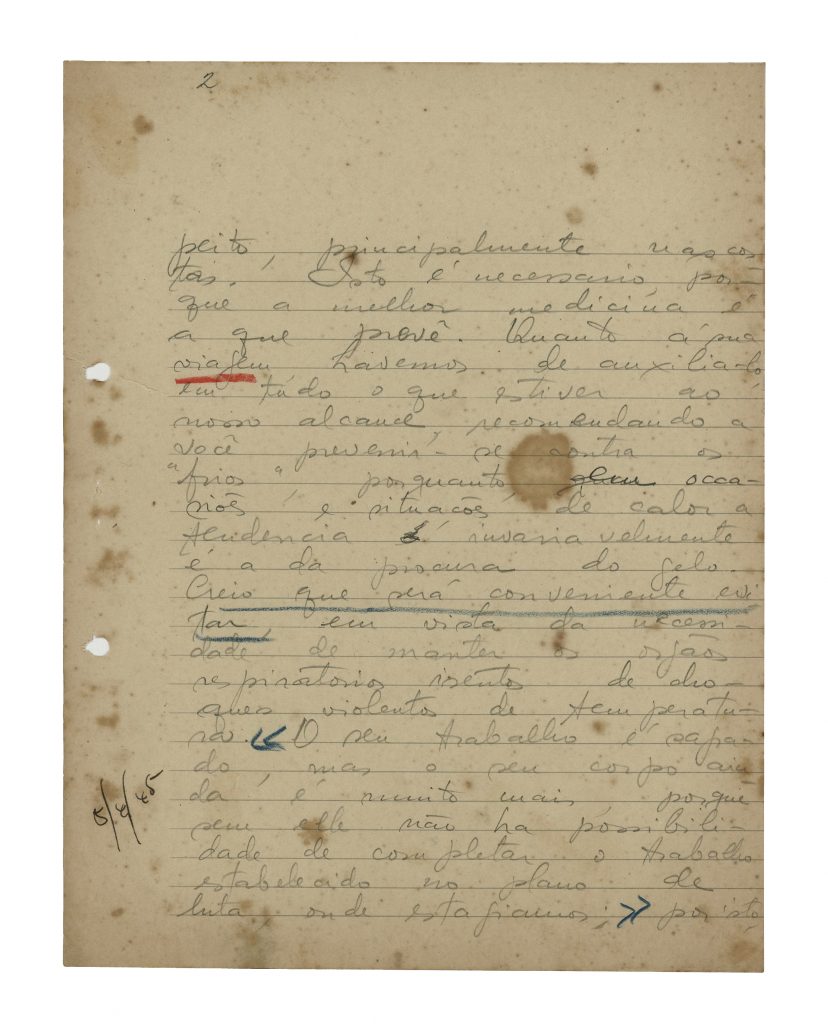 2
peito, principalmente nas cos-
tas. Isto é necessario, por-
que a melhor medicina é
a que provê. Quanto á sua
viagem havemos de auxilia-lo
em tudo o que estiver ao
nosso alcance, recomendando a
você prevenir-se contra os
"frios" porquanto em occa-
siões e situacões de calor a
tendencia invariavelmente
é a da procura do gelo.
Creio que será conveniente evi
tar, em vista da necessi-
dade de manter os orgãos
respiratorios isentos de cho-
ques violentos de temperatu-
ra. « O seu trabalho é sagra-
do, mas o seu corpo ain
da é muito mais porque
sem elle não ha possibili-
dade de completar o trabalho
estabelecido no plano de
luta, onde estagiamos; » por isto,
5/4/45